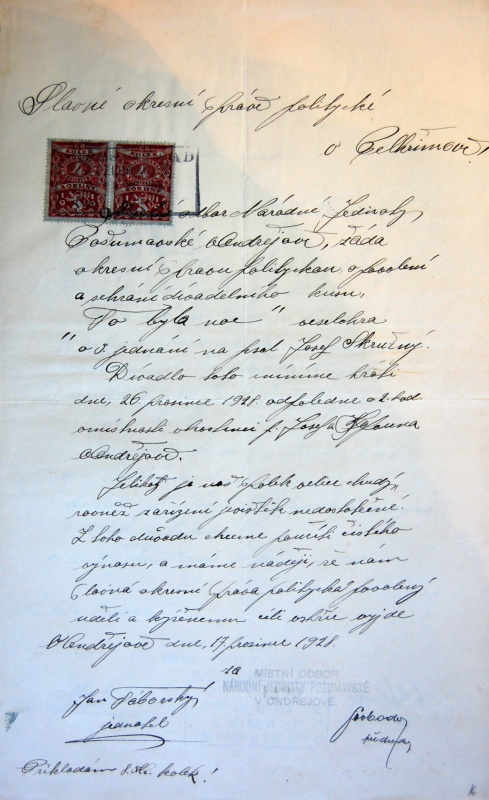 Slavné okresní správě politycké
v Pelhřimově!
KOLEK KOLEK
4 4
KORUNY KORUNY
1919 1919
Místní odbor Národní Jednoty
Pošumavské v Ondřejově, žádá
okresní správu polityckou, o povolení
a sehrání divadelního kusu,
"To byla noc" veselohra
o 3. jednání na psal Josef Skružný.
Divadlo toto míníme hráti
dne, 26 prosince 1928. odpoledne o 2. hod
v místnosti v hostinci p. Josefa
v Ondřejově.
Jelikož je náš spolek velice chudý,
rovněž zařízení jevištěk nedostatečné.
Z toho důvodu chceme použíti čistého
výnosu, a máme naději, že nám
slavná okresní správa politycká povolený
udělí a vyjde
V Ondřejově dne, 17 prosince 1928.
za
MÍSTNÍ ODBOR
NÁRODNÍ JEDNOTY POŠUMAVSKÉ
V ONDŘEJOVĚ.
Jan Táborský
jednatel
Svoboda
předseda
Přikládám 8. Kč. kolek!